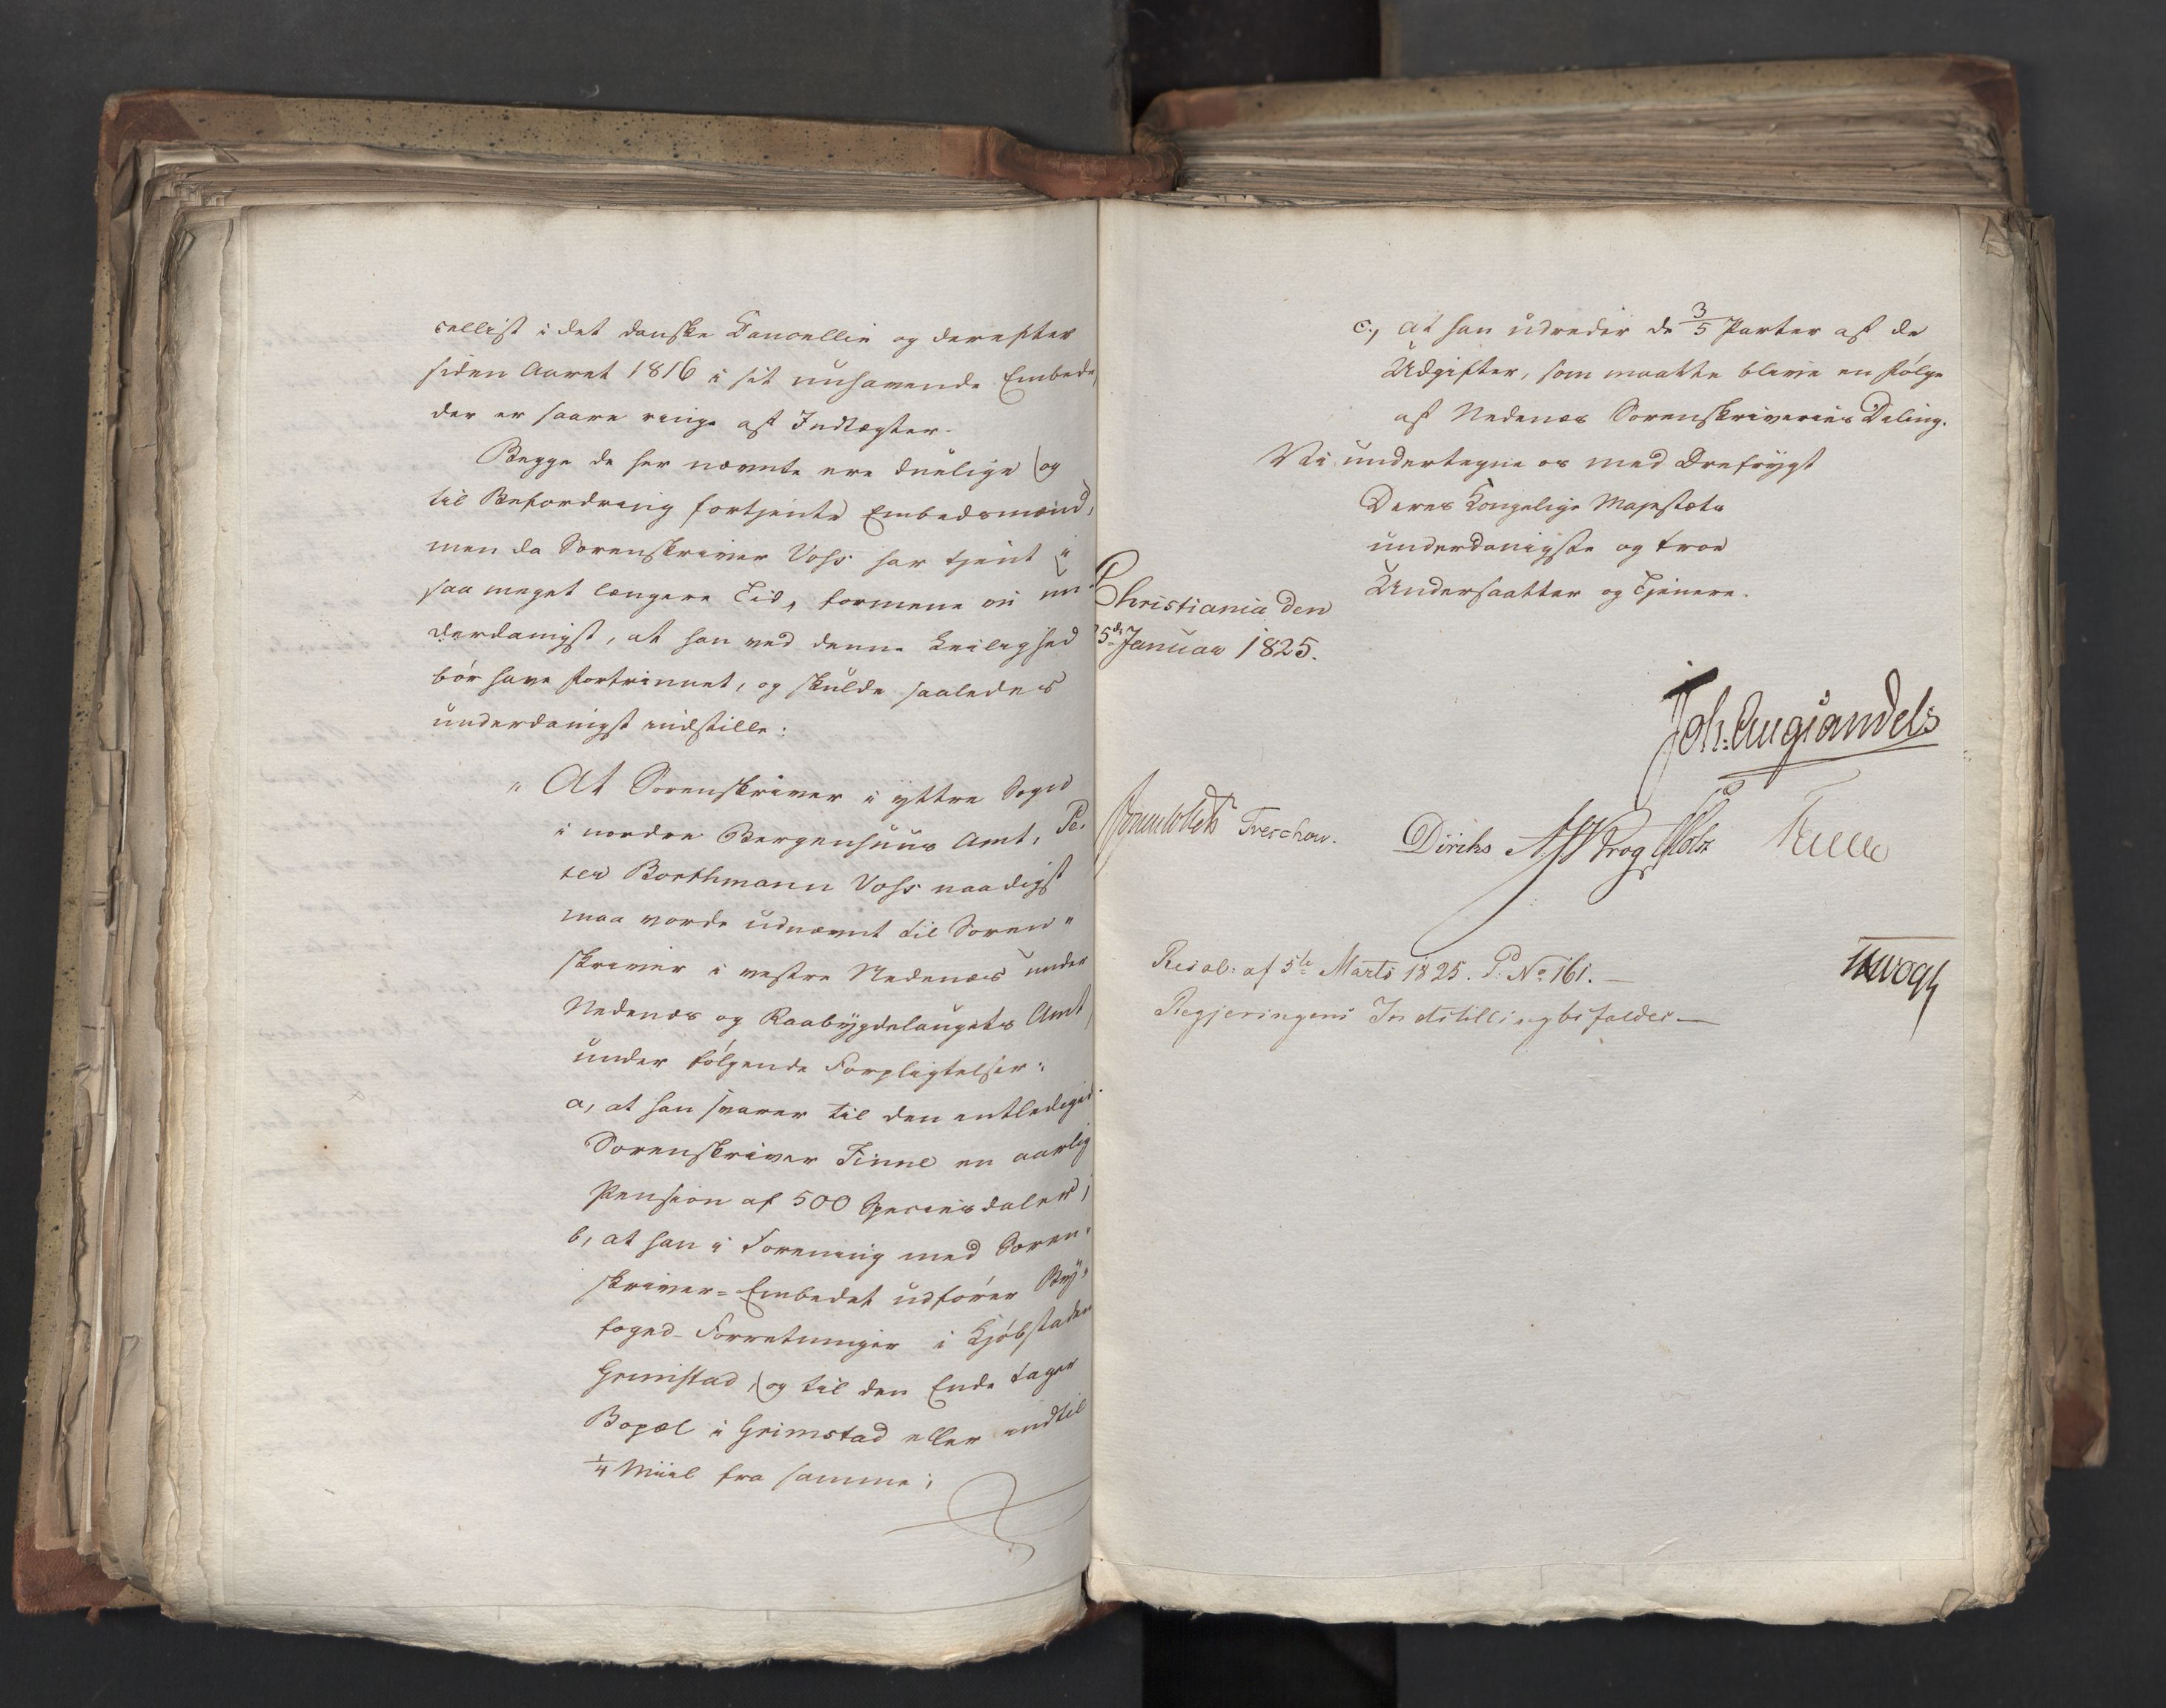 cellist i det danske Cancellie og derefter
siden Aaret 1816 i sit nuhavende Embede,
der er saare ringe af Indtægter.
Begge de her nævnte ere duelige og
til Befordring fortjente Embedsmænd,
men da Sorenskriver Voss har tjent i
saa meget længere Tid, formene vi un
derdanigst, at han ved denne Leilighed
bør have Fortrinnet, og skulde saaledes
underdanigst indstille:
" At Sorenskriver i yttre Sogn
i nordre Bergenhuus Amt, Pe-
ter Borthmann Voss naadigst
maa vorde udnævnt til Soren"
skriver i vestre Nedenæs under
Nedenæs og Raabygdelaugets Amt,
under følgende Forpligtelser:
a, at han svarer til den entledigede
Sorenskriver Finne en aarlig
Pension af 500 Speciesdaler;
b, at han i Forening med Soren"
skriver=Embedet udfører By"
foged-Forretninger i Kjøbstaden
Grimstad, og til den Ende tager
Bopæl i Grimstad eller indtil
1/4 Miil fra samme;
c., at han udreder de 3/5 Parter af de
Udgifter, som maatte blive en Følge
af Nedenæs Sorenskriveries Deling.
Vi undertegne os med Ærefrygt
Deres Kongelige Majestæts
underdanigste og troe
Undersaatter og Tjenere.
Christiania den
25de Januar 1825.
Joh: Aug: Sandels
Sommerhielm Treschow. Diriks Krog Holst
Resol: af 5te Marts 1825. P. No 161.—
Regjeringens Indstilling bifaldes—
Vogt